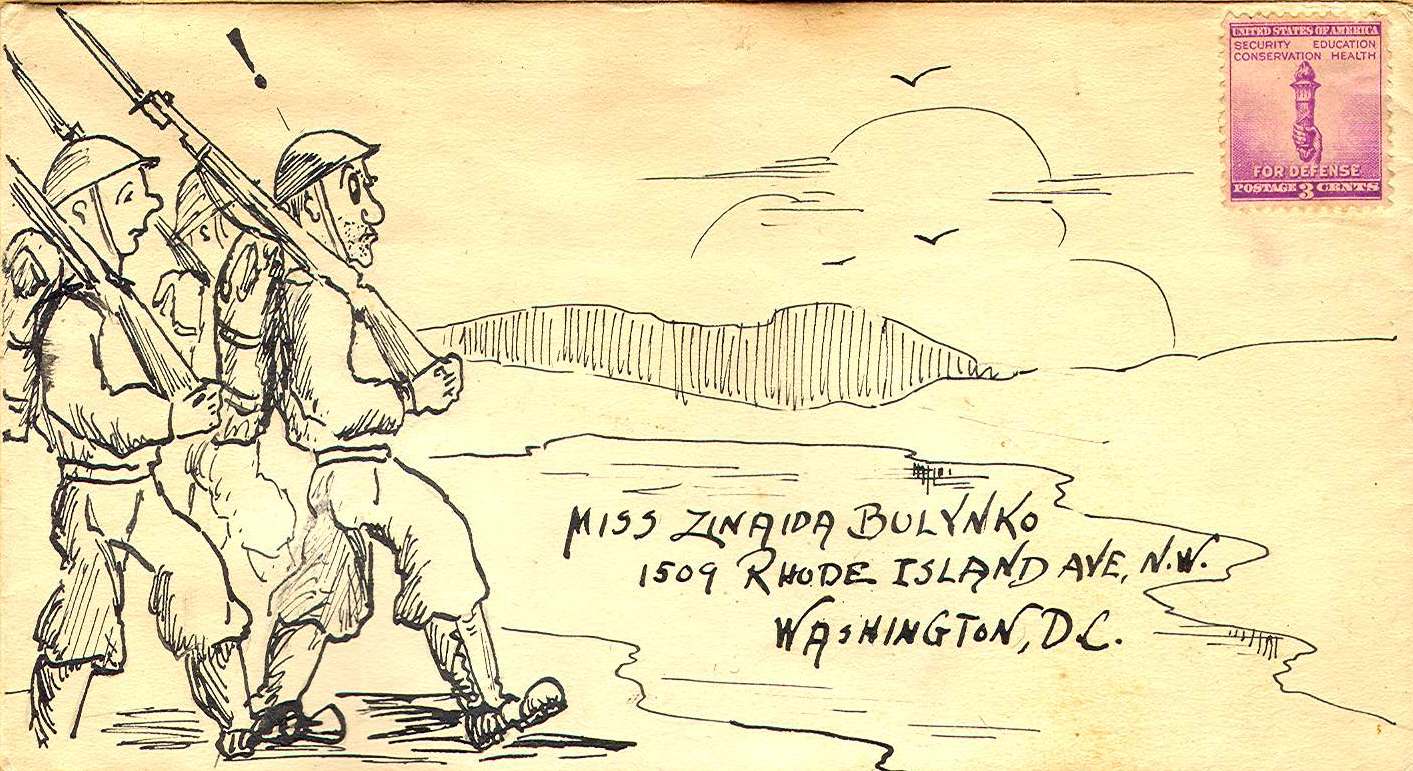 !
UNITED STATES OF AMERICA
SECURITY EDUCATION
CONSERVATION HEALTH
FOR DEFENSE
POSTAGE 3 CENTS
MISS ZINAIDA BULYNKO
1509 RHODE ISLAND AVE, N.W.
WASHINGTON, D.C.